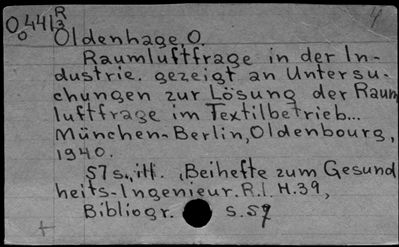 O 441 R
o 3
Oldenhage O
Raumluftfrage in der In-
dustrie. gezeigt an Untersu-
chungen zur Lösung der Raum
luftfrage im Textilbetrieb...
München-Berlin, Oldenbourg,
1940.
57 s., ill. „Beihefte zum Gesund
heits-Ingenieur. R.I. H.39,
Bibliogr. s. 57